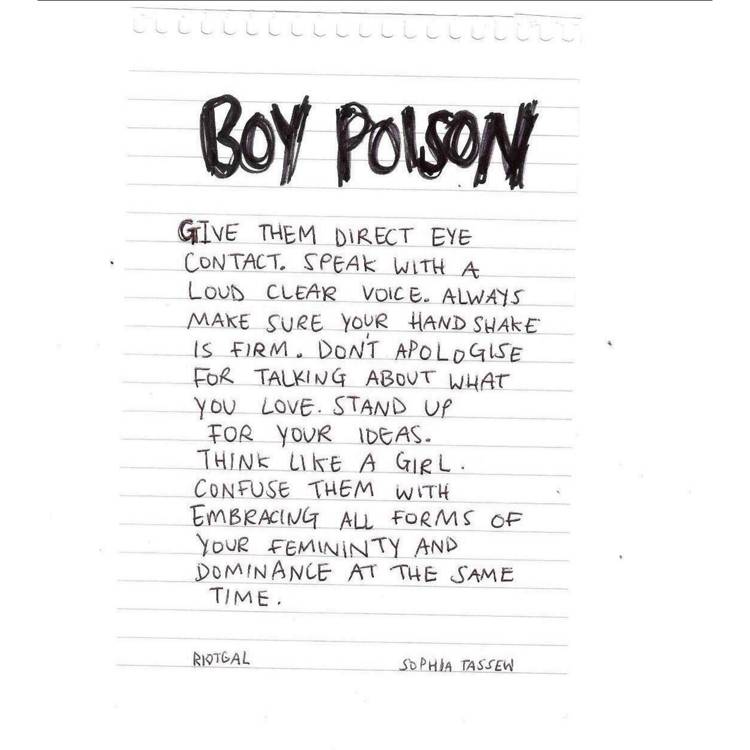 BOY POISON
GIVE THEM DIRECT EYE
CONTACT. SPEAK WITH A
LOUD CLEAR VOICE. ALWAYS
MAKE SURE YOUR HANDSHAKE
IS FIRM. DON'T APOLOGISE
FOR TALKING ABOUT WHAT
YOU LOVE. STAND UP
FOR YOUR IDEAS.
THINK LIKE A GIRL.
CONFUSE THEM WITH
EMBRACING ALL FORMS OF
YOUR FEMININTY AND
DOMINANCE AT THE SAME
TIME.
RIOTGAL SOPHIA TASSEW